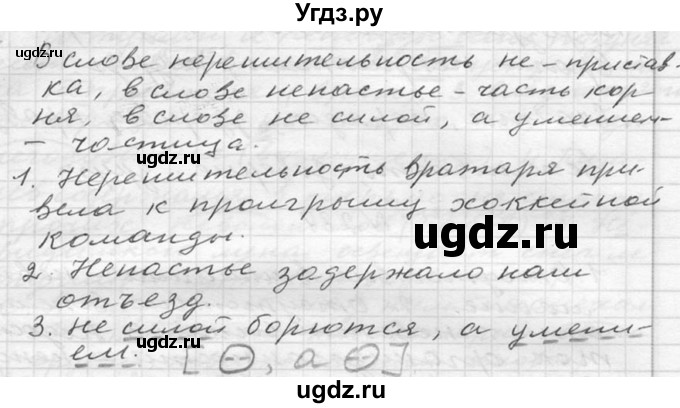 Угдз.ру
В слове нерешительность не - пристав-
ка, в слове ненастье - часть кор
ня, в слове не силой, а умением-
- частица.
ugdz.ru
ugdz.ru
1. Нерешительность вратаря при-
вела к проигрышу хоккейной
команды.
ugdz.ru
2. Ненастье задержало наш
отъезд.
ugdz.ru
3. не силой борются, а умени-
ем. [⊖, а ⊖]
ugdz.ru